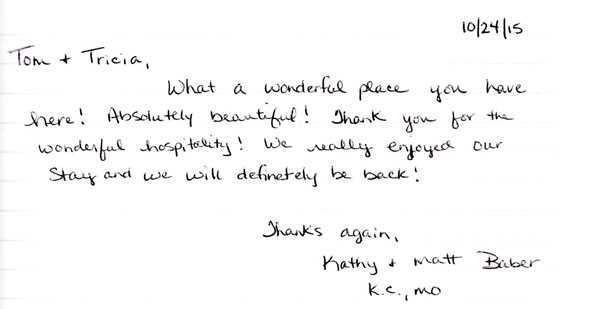 10/24/15
Tom + Tricia,
What a wonderful place you have
here! Absolutely beautiful! Thank you for the
wonderful hospitality! We really enjoyed our
stay and we will definetely be back!
Thanks again,
Kathy + Matt Baber
K.C., MO